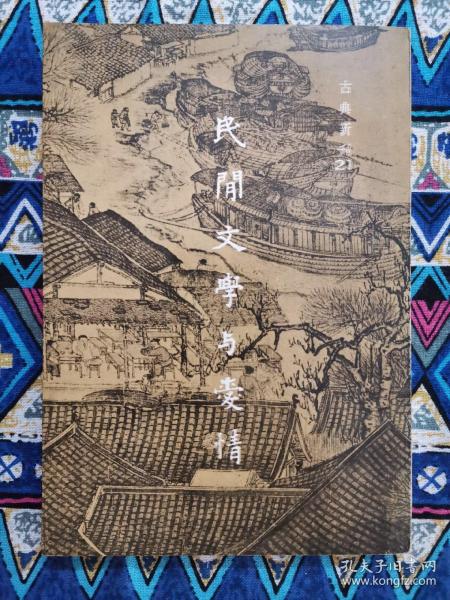 古典新刊21
民間文學与愛情
孔夫子旧书网
www.kongfz.com